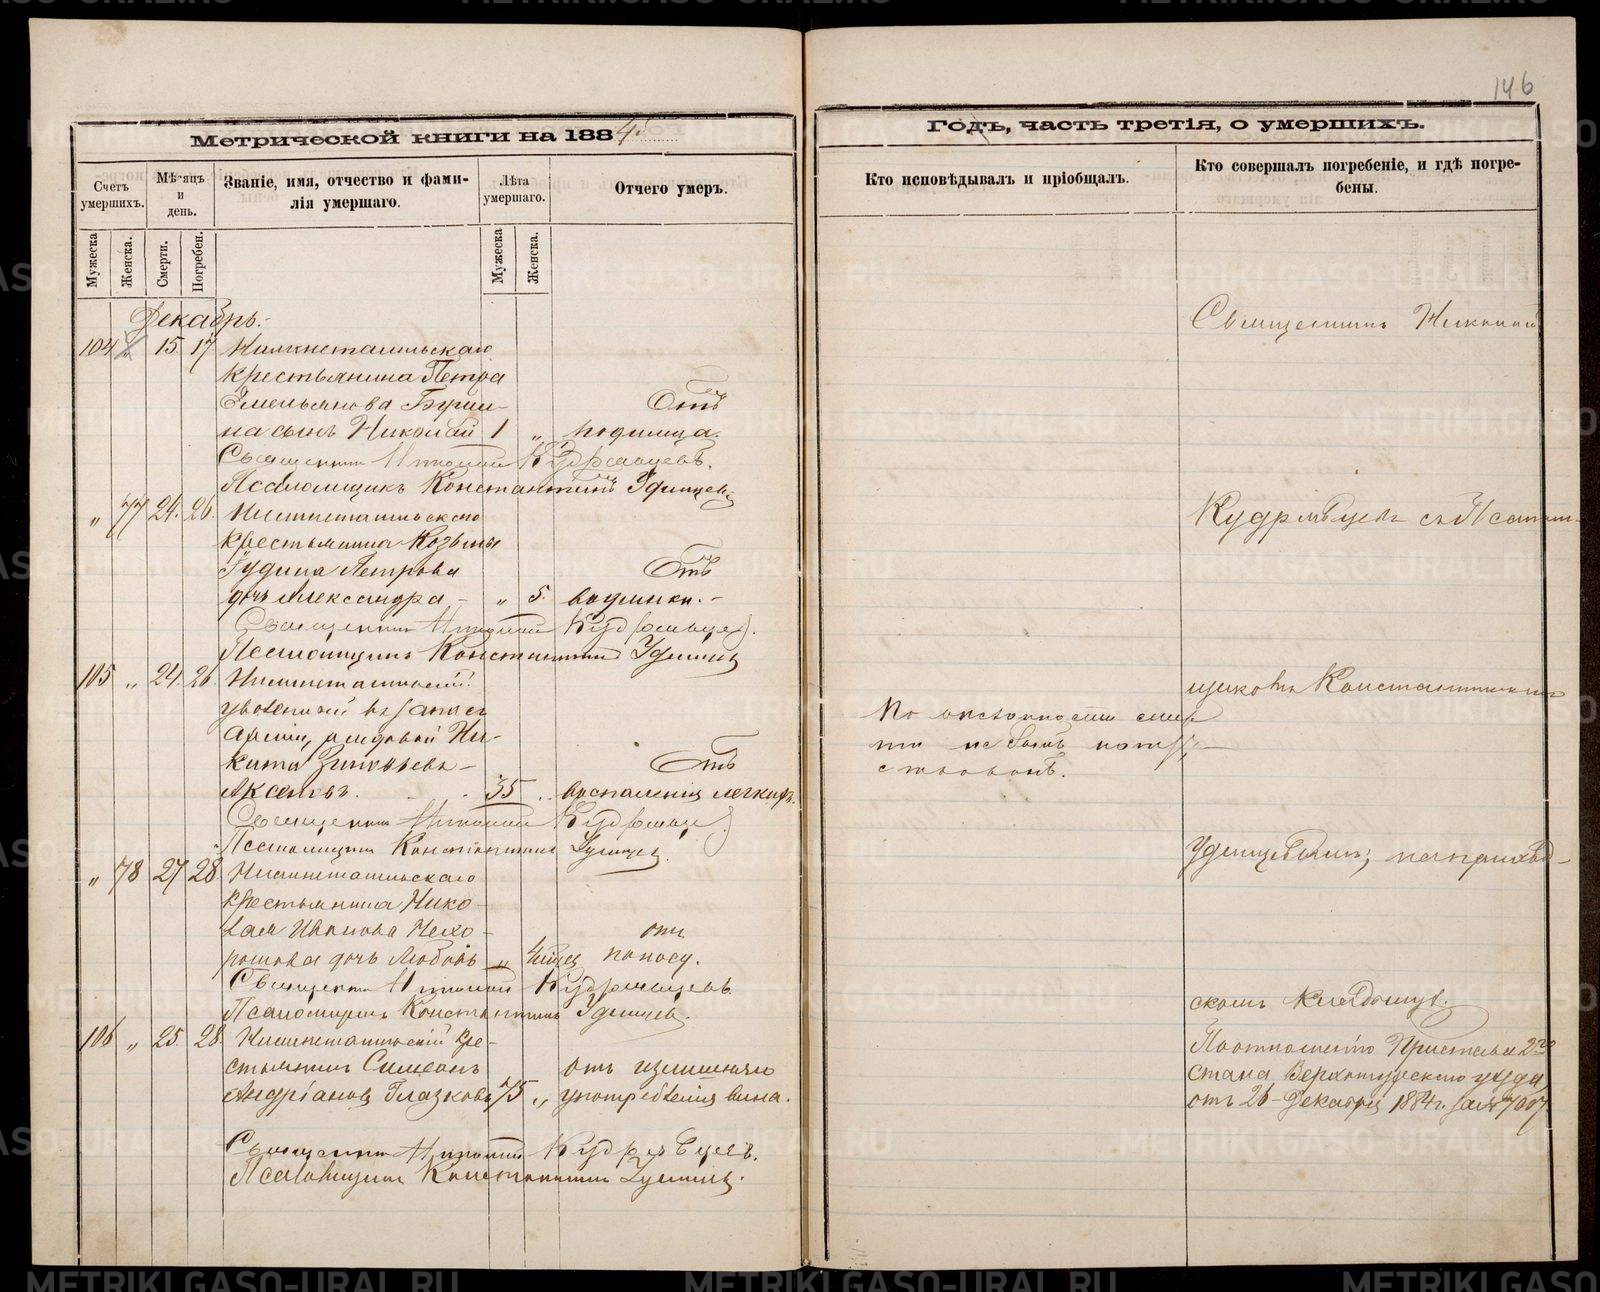 146
Метрической книги на 1884
Годъ, часть третія, о умершихъ.
Счетъ умершихъ.
Мѣсяцъ и день.
Званіе, имя, отчество и фами-
лія умершаго.
Лѣта умершаго.
Отчего умеръ.
Кто исповѣдывалъ и пріобщалъ.
Кто совершалъ погребеніе, и гдѣ погре-
бены.
Мужеска
Женска.
Смерти.
Погребен.
Мужеска
Женска.
Декабрь.
104 15 17 Нижнетагильскаго
крестьянина Петра
Емельянова
на сынъ Николай 1 „ родимца.
Отъ
Священникъ Кудрявцевъ.
Псаломщикъ Константинъ Удинцевъ
„ 77 24. 26. Нижнетагильскаго
крестьянина Козьмы
Петрова
Отъ
дочь Александра „ 5. водянки.
Священникъ Кудрявцев.
Псаломщикъ Константинъ Удинцевъ
105 „ 24. 26. Нижнетагильскій
уволенный въ запасъ
арміи, рядовой Ни-
кита Зиновьевъ
Отъ
Аксеновъ. 35 „ воспаленія легкихъ.
Священникъ Кудрявцев
Псаломщикъ Константинъ Удинцев.
„ 78 27 28 Нижнетагильскаго
крестьянина Нико-
лая Иванова Нехо-
отъ
рошева дочь Любовь „ поносу.
Священникъ Кудрявцевъ
Псаломщикъ Константинъ Удинцев.
106 „ 25. 28. Нижнетагильскій кре-
стьянинъ Симеонъ
отъ излишняго
Андріановъ Глазковъ 75 „ употребленія вина.
Священникъ Кудрявцевъ.
Псаломщикъ Константинъ Удинцевъ.
По скоропостижности смер
ти не былъ напут-
ствованъ.
Священникъ
Кудрявцевъ съ Псалом-
щикомъ Константиномъ
Удинцевымъ; на приход-
скомъ кладбищѣ.
По отношенію Пристава 2го
стана Верхотурскаго уѣзда,
отъ 26 Декабря 1884 г. за №
METRIKI.GASO-URAL.RU